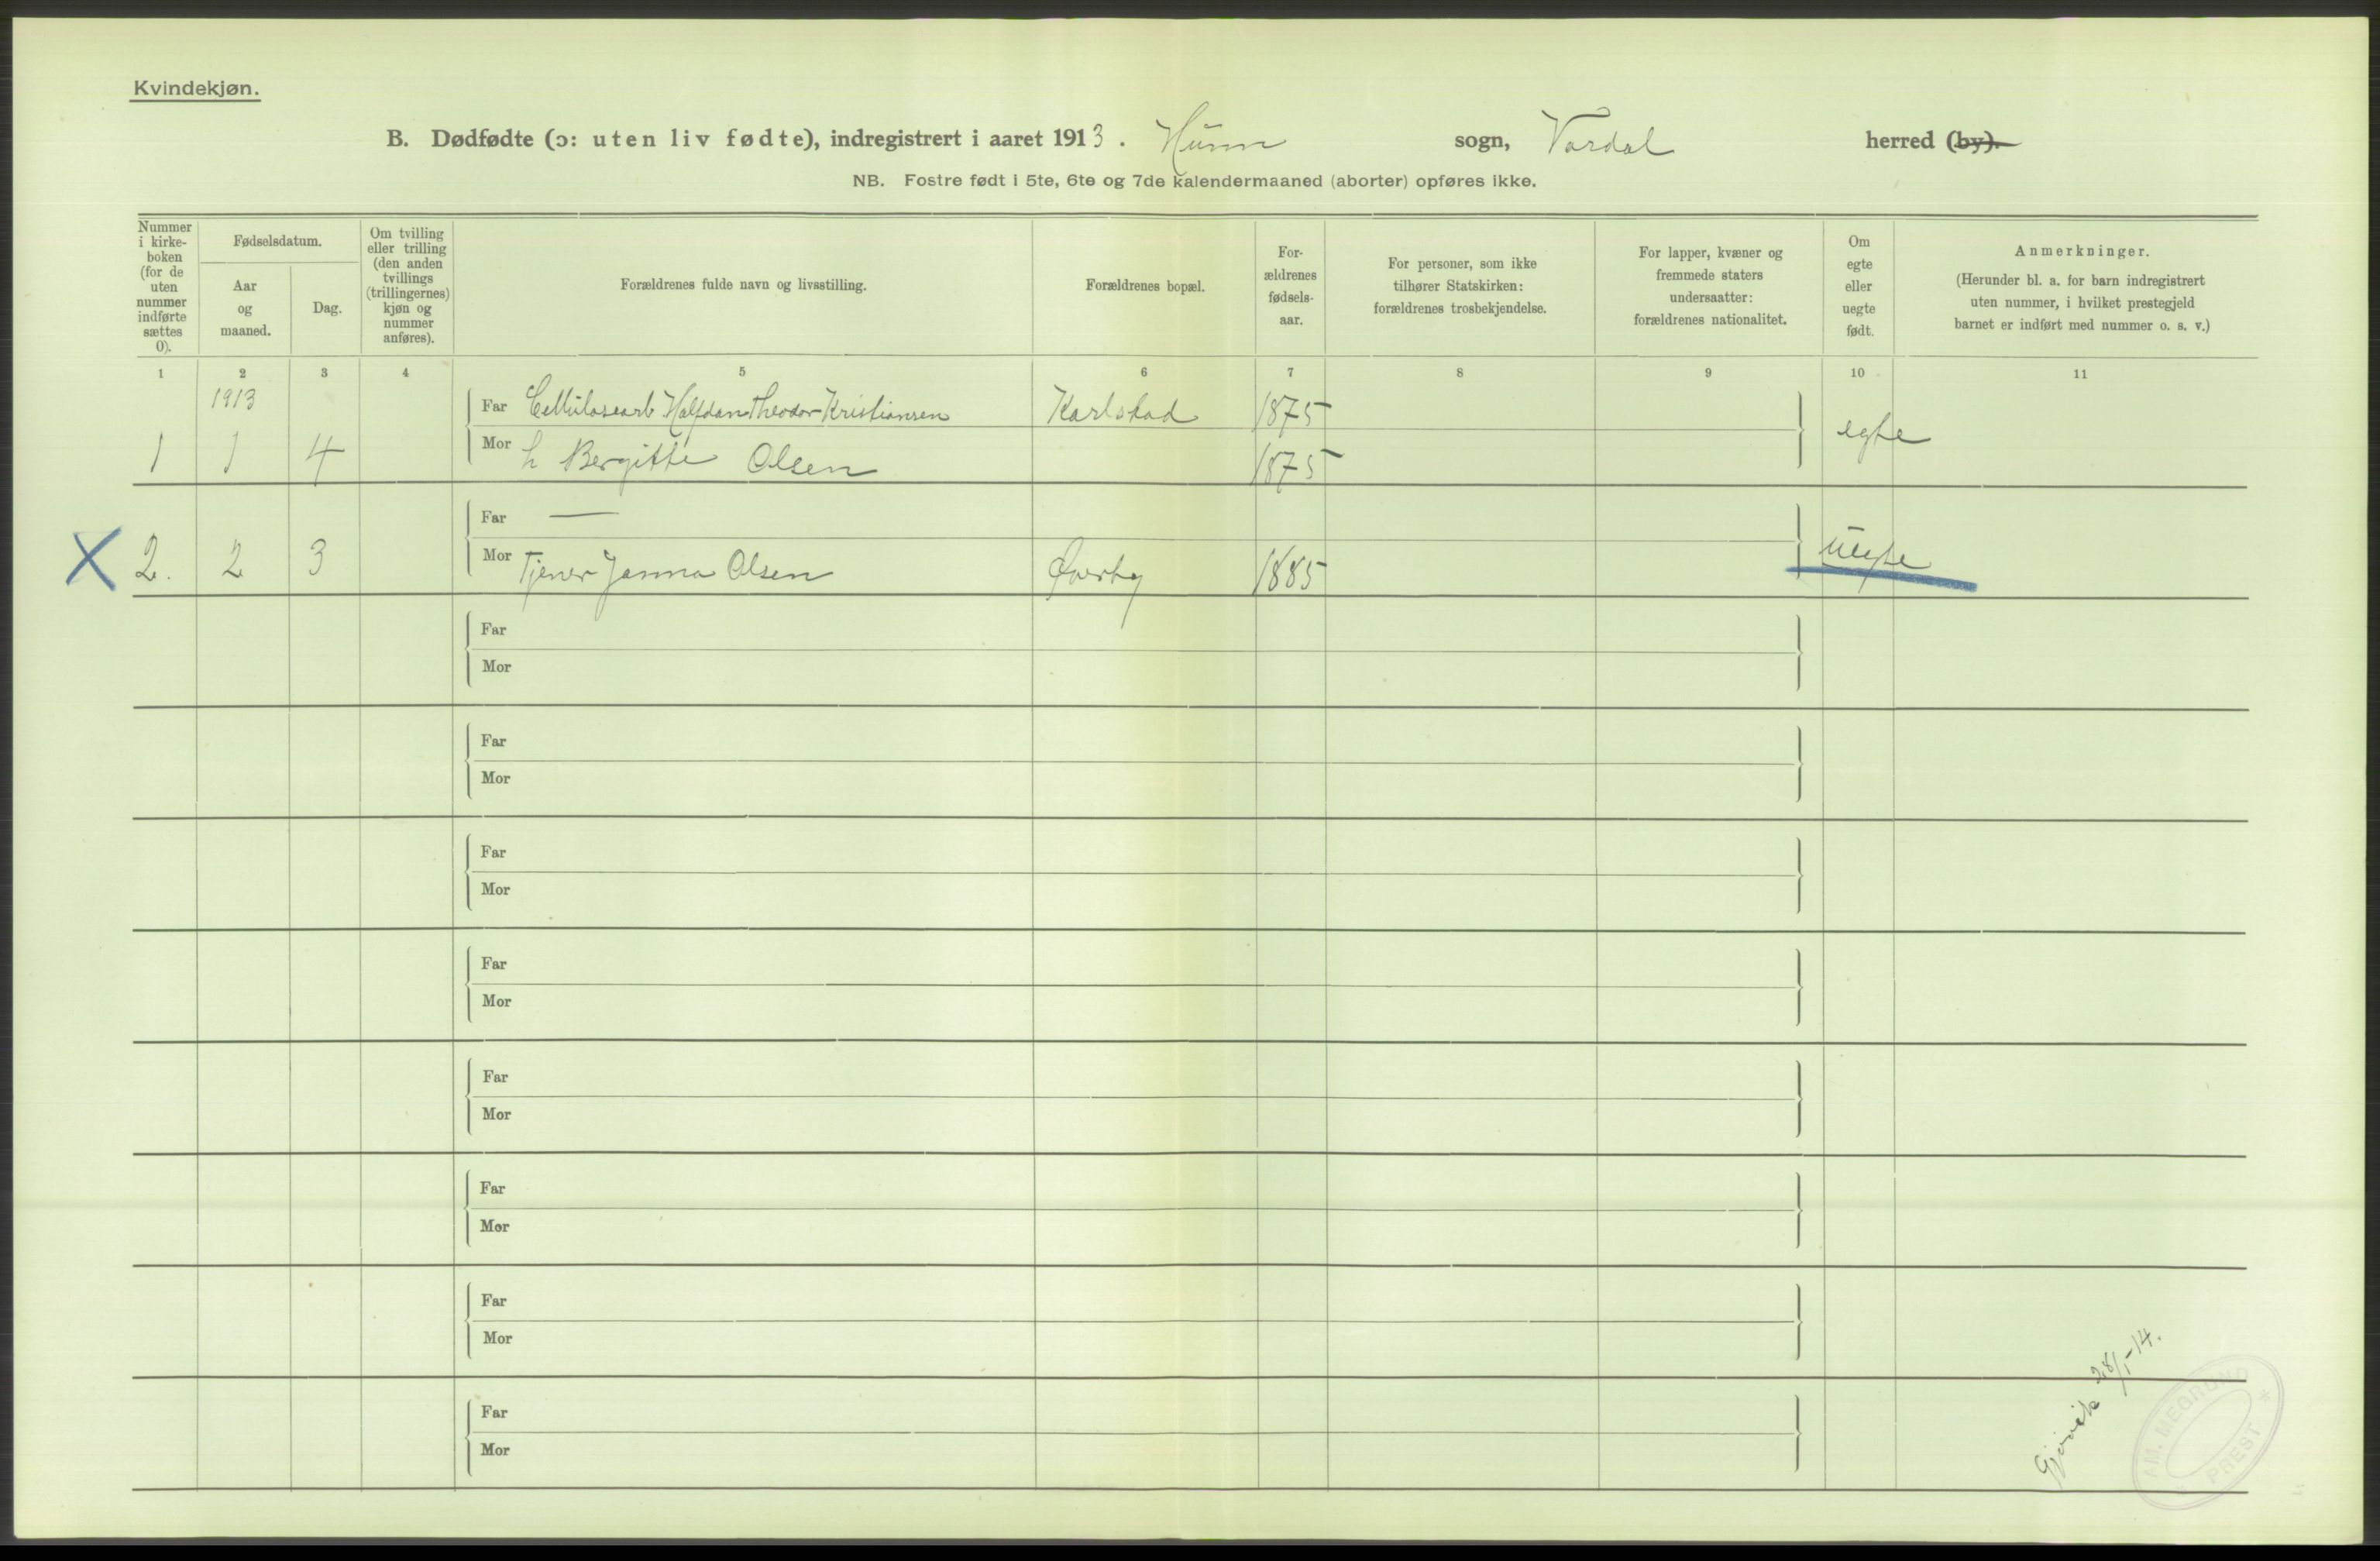 Kvindekjøn.
B. Dødfødte (ɔ: uten liv fødte), indregistrert i aaret 1913. Hunn sogn, Vardal herred (by).
NB. Fostre født i 5te, 6te og 7de kalendermaaned (aborter) opføres ikke.
Nummer
i kirke-
boken
(for de
uten
nummer
indførte
sættes
0).
Fødselsdatum.
Aar
og
maaned.
Dag.
Om tvilling
eller trilling
(den anden
tvillings
(trillingernes)
kjøn og
nummer
anføres).
Forældrenes fulde navn og livsstilling.
Forældrenes bopæl.
For-
ældrenes
fødsels-
aar.
For personer, som ikke
tilhører Statskirken:
forældrenes trosbekjendelse.
For lapper, kvæner og
fremmede staters
undersaatter:
forældrenes nationalitet.
Om
egte
eller
uegte
født.
Anmerkninger.
(Herunder bl. a. for barn indregistrert
uten nummer, i hvilket prestegjeld
barnet er indført med nummer o. s. v.)
1 2 3 4 5 6 7 8 9 10 11
1913
Far Cellulosearb Halfdan Theodor Kristiansen Karlstad 1875
1 1 4 Mor h Bergitte Olsen 1875 egte
Far —
X 2. 2 3 Mor Tjener Janna Olsen Øverby 1885 uegte
Far
Mor
Far
Mor
Far
Mor
Far
Mor
Far
Mor
Far
Mor
Far
Mor
Far
Mor
Gjøvik 28/1-14.
AM. MEGRUND
PREST